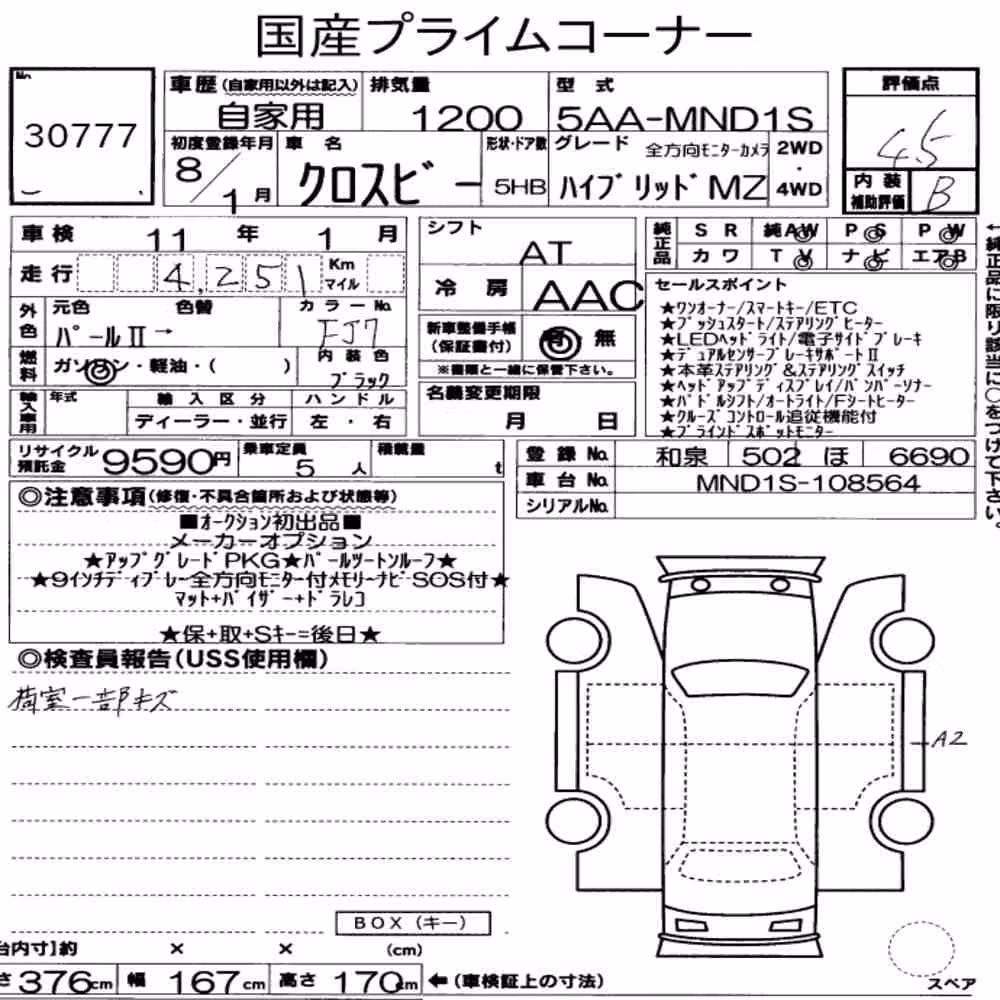 国産プライムコーナー
No. 30777
車歴 (自家用以外は記入) 自家用
排気量 1200
型式 5AA-MND1S
評価点 4.5
内装補助評価 B
初度登録年月 8/1月
車名 クロスビー
形状・ドア数 5HB
グレード 全方向モニターカメラ
ハイブリッドMZ
2WD・4WD
車検 11年 1月
走行 4,251 Km マイル
外色 元色 パールⅡ→ 色替
カラーNo. FJ7
燃料 ガソリン・軽油・( )
内装色 ブラック
輸入車用 年式 輸入区分 ディーラー・並行 ハンドル 左・右
シフト AT
冷房 AAC
新車整備手帳(保証書付) 有・無
※書類と一緒に保管下さい。
名義変更期限 月 日
純正品 SR 純AW PS PW
カワ TV ナビ エアB
←純正品に限り該当に○をつけて下さい。
セールスポイント
★ワンオーナー/スマートキー/ETC
★プッシュスタート/ステアリングヒーター
★LEDヘッドライト/電子サイドブレーキ
★デュアルセンサーブレーキサポートⅡ
★本革ステアリング&ステアリングスイッチ
★ヘッドアップディスプレイ/バンパーソナー
★パドルシフト/オートライト/Fシートヒーター
★クルーズコントロール追従機能付
★ブラインドスポットモニター
リサイクル預託金 9590円
乗車定員 5人
積載量 t
登録No. 和泉 502 ほ 6690
車台No. MND1S-108564
シリアルNo.
◎注意事項(修復・不具合箇所および状態等)
■オークション初出品■
メーカーオプション
★アップグレードPKG★パールツートンルーフ★
★9インチディプレー全方向モニター付メモリーナビSOS付★
マット+バイザー+ドラレコ
★保+取+Sキー=後日★
◎検査員報告(USS使用欄)
荷室一部キズ
A2
BOX(キー)
台内寸】約 × × (cm)
さ 376cm 幅 167cm 高さ 170cm ←(車検証上の寸法)
スペア